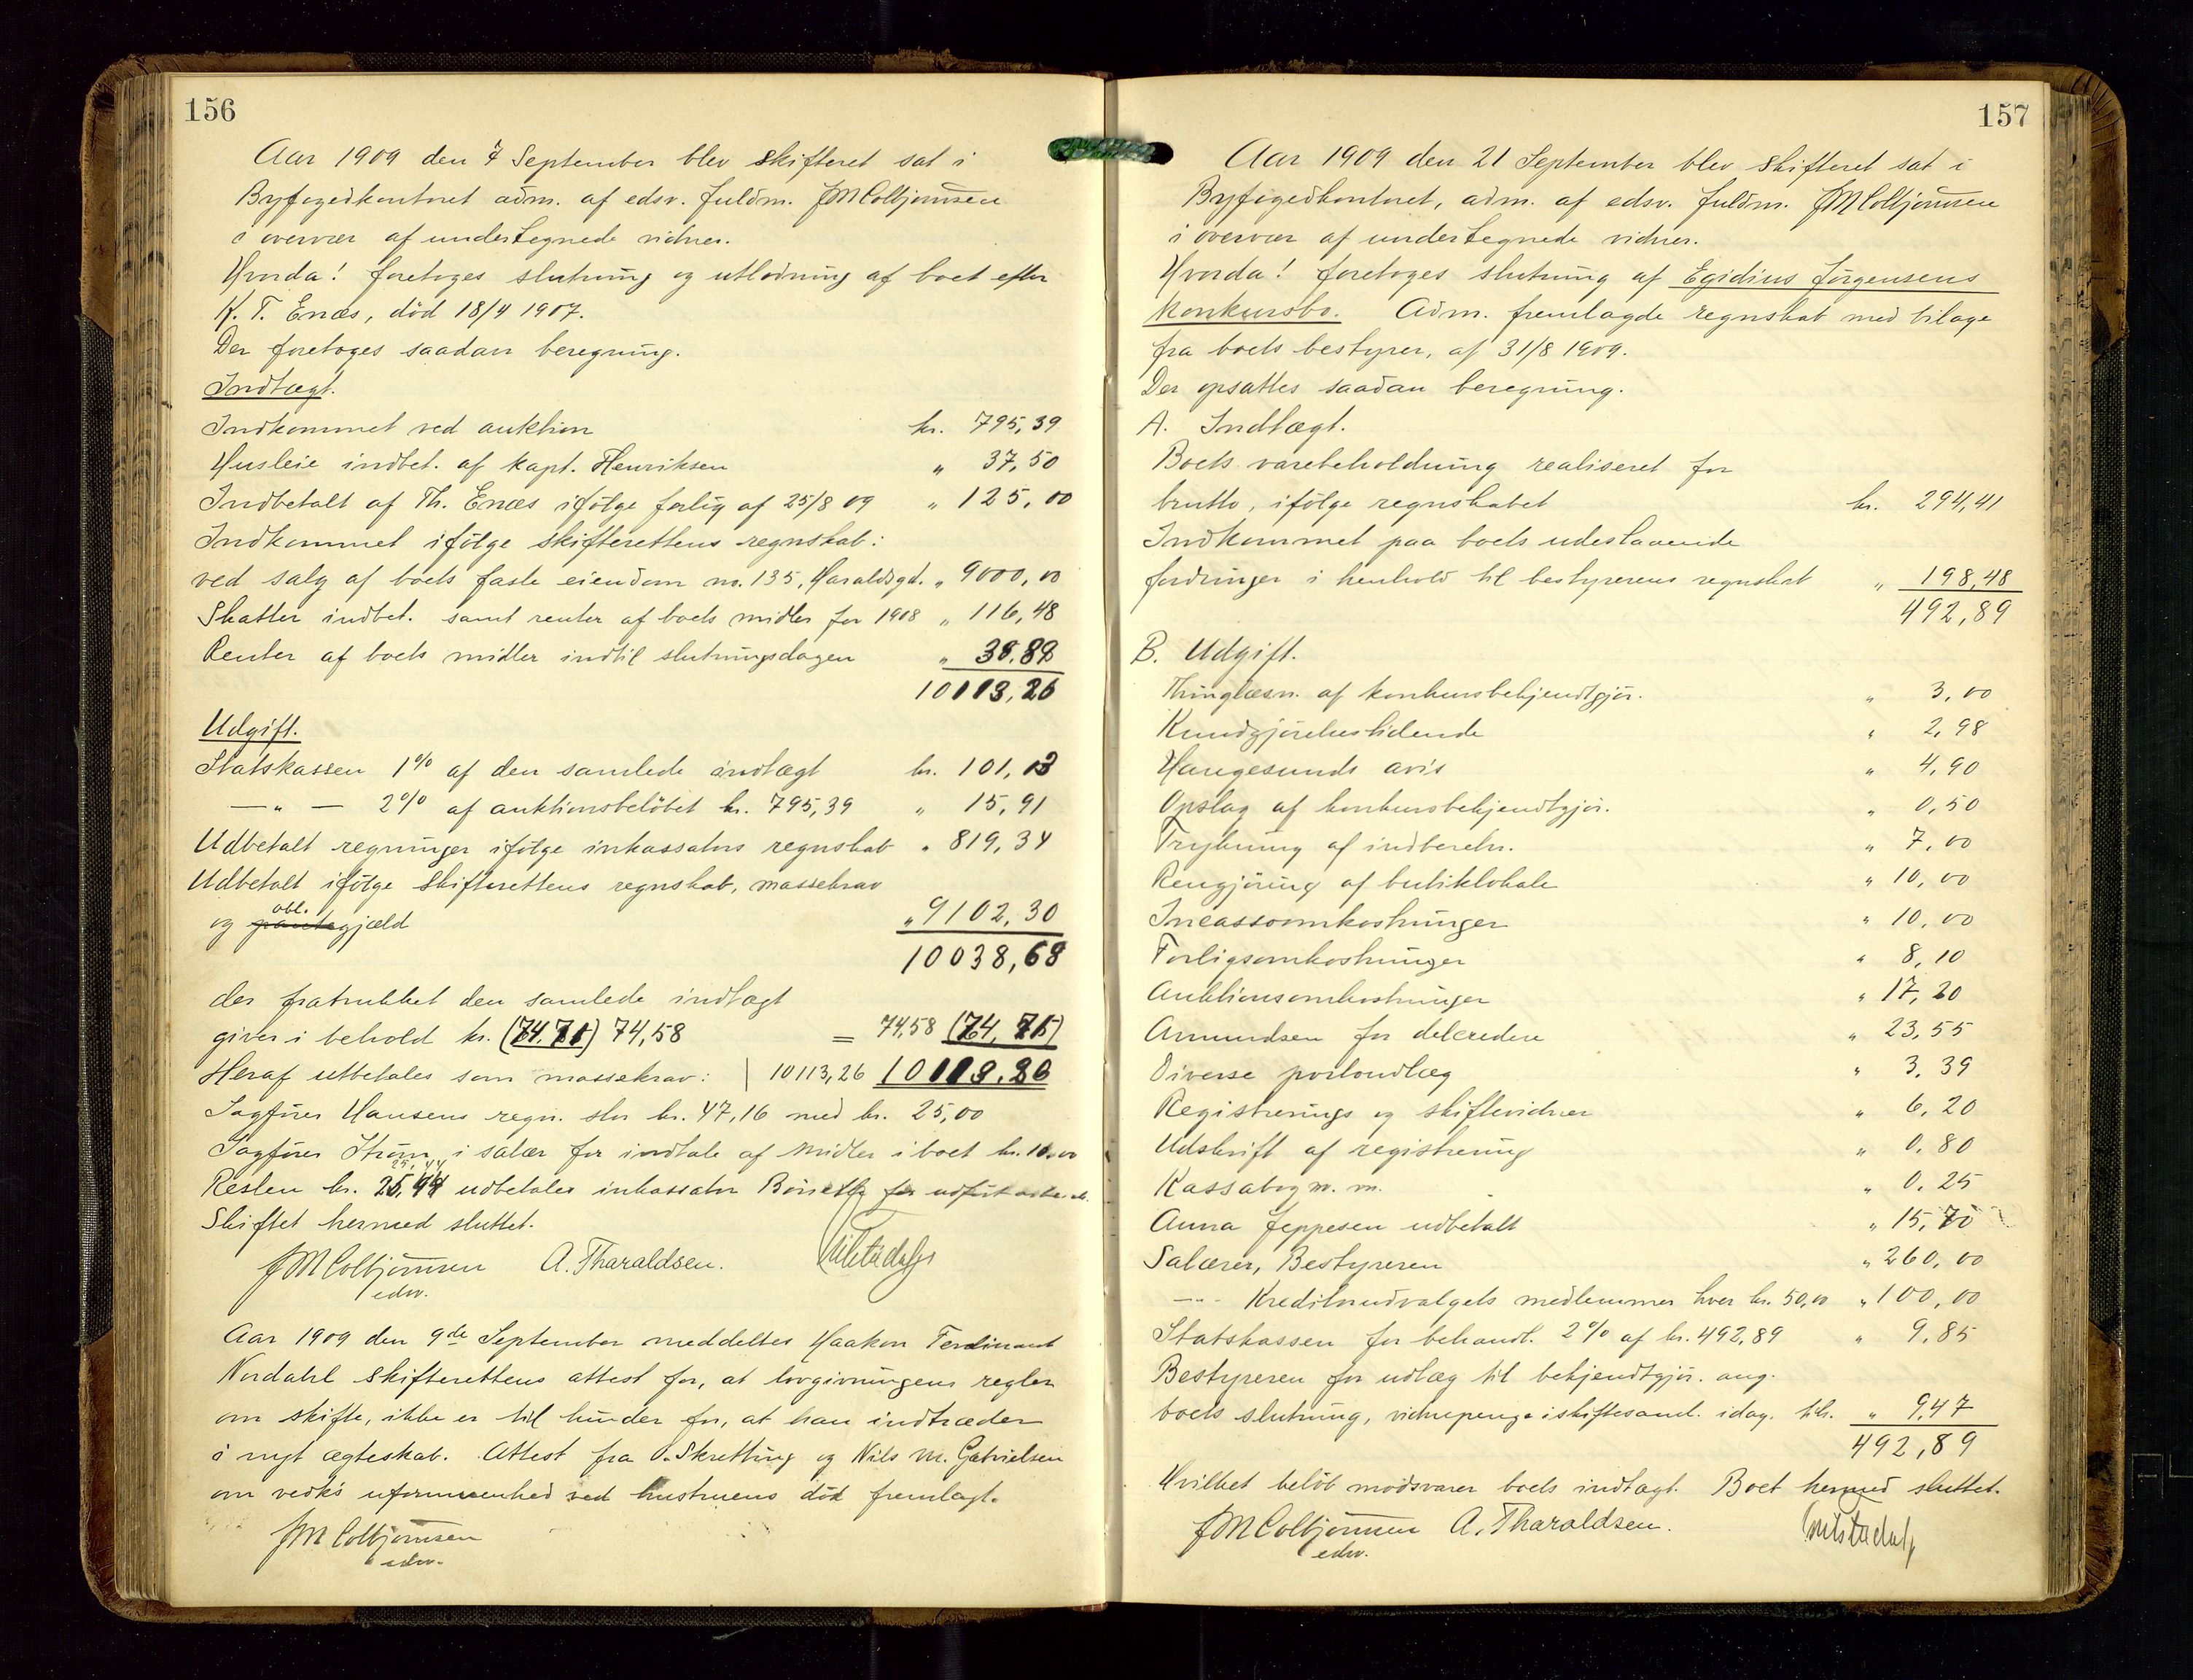 156
Aar 1909 den 7 September blev skifteret sat i
Byfogedkontoret adm. af edsv. fuldm. JM Colbjørnsen
i overvær af undertegnede vidner.
Hvorda! foretoges slutning og utlodning af boet efter
K. T. Enæs, död 18/4 1907.
Der foretoges saadan beregning.
Indtægt.
Indkommet ved auktion kr. 795,39
Husleie indbet. af kapt. Henriksen " 37,50
Indbetalt af Th. Enæs ifölge forlig af 25/8 09 " 125,00
Indkommet ifölge skifterettens regnskab:
ved salg af boets faste eiendom no. 135, Haraldsgd. " 9000,00
Skatter indbet. samt renter af boets midler for 1908 " 116,48
Renter af boets midler indtil slutningsdagen " 38,89
10113,26
Udgift.
Statskassen 1% af den samlede indtægt kr. 101,13
— " — 2% af auktionsbelöbet kr. 795,39 " 15,91
Udbetalt regninger ifölge inkassators regnskab " 819,34
Udbetalt ifölge skifterettens regnskab, massekrav
obl.
og pantegjæld " 9102,30
10038,68
der fratrukket den samlede indtægt
giver i behold kr. (74,71) 74,58 = 74,58 (74,71)
Heraf utbetales som massekrav: | 10113,26 10113,26
Sagförer Hansens regn. stor kr. 47,16 med kr. 25,00
Sagförer Ström, i salær for indtale af midler i boet kr. 10,00
25,44
Resten kr. 25,44 udbetales inkassator for udfört
Skiftet hermed sluttet.
JM Colbjørnsen A. Tharaldsen.
edsv.
Aar 1909 den 9de September meddeltes Haakon Ferdinant
Nordahl skifterettens attest for, at lovgivningens regler
om skifte, ikke er til hinder for, at han indtræder
i nyt ægteskab. Attest fra O. Skretting og Nils M. Gabrielsen
om vedk's uformuenhed ved hustruens död fremlagt.
JM Colbjørnsen
edsv.
157
Aar 1909 den 21 September blev skifteret sat i
Byfogedkontoret, adm. af edsv. fuldm. JM Colbjørnsen
i overvær af undertegnede vidner.
Hvorda! foretoges slutning af Egidius Jörgensens
konkursbo. Adm. fremlagde regnskab med bilage
fra boets bestyrer, af 31/8 1909.
Der opsattes saadan beregning.
A. Indtægt.
Boets varebeholdning realiseret for
brutto, ifölge regnskabet kr. 294,41
Indkommet paa boets udestaaende
fordringer i henhold til bestyrerens regnskab " 198,48
492,89
B. Udgift.
Thinglæsn. af konkursbekjendtgjör. " 3,00
Kundgjörelsestidende " 2,98
Haugesunds avis " 4,90
Opslag af konkursbekjendtgjör. " 0,50
Trykning af indberetn. " 7,00
Rengjöring af butiklokale " 10,00
Incassoomkostninger " 10,00
Forligsomkostninger " 8,10
Auktionsomkostninger " 17,20
Amundsen for delcredere " 23,55
Diverse portoudlæg " 3,39
Registrerings og skiftevidner " 6,20
Udskrift af registrering " 0,80
Kassabog m. m. " 0,25
Anna Jeppesen udbetalt " 15,70
Salærer, Bestyreren " 260,00
— " — Kreditorudvalgets medlemmer hver kr. 50,00 " 100,00
Statskassen for behandl. 2% af kr. 492,89 " 9,85
Bestyreren for udlæg til bekjendtgjör. ang.
boets slutning, vidnepenge i skiftesaml. idag. tils. " 9,47
492,89
Hvilket belöb modsvarer boets indtægt. Boet hermed sluttet.
JM Colbjørnsen A. Tharaldsen.
edsv.